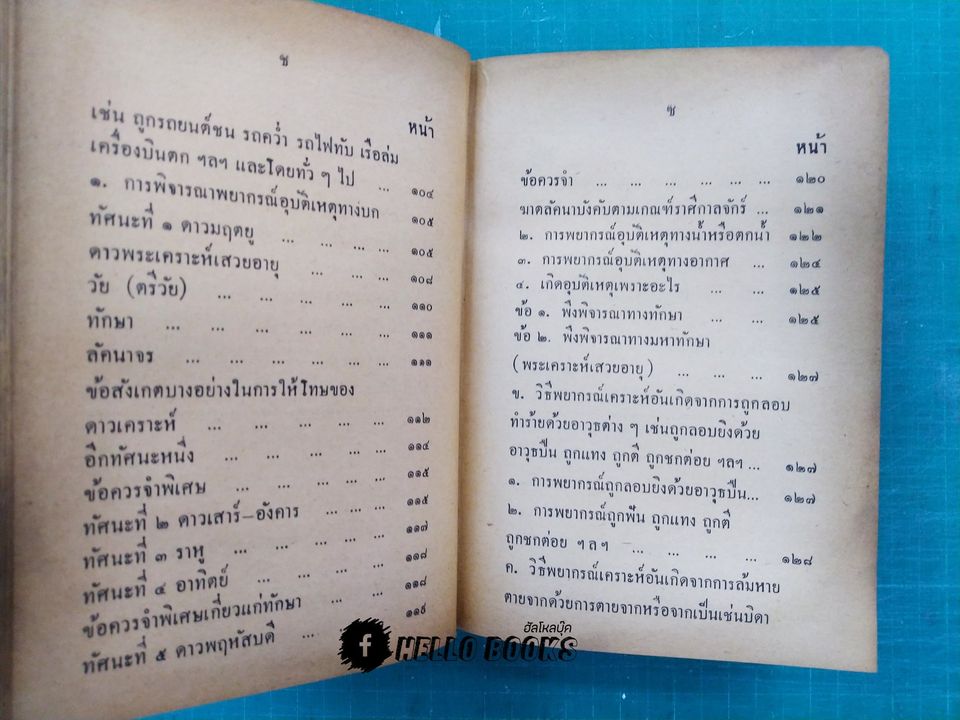 ช
หน้า
เช่น ถูกรถยนต์ชน รถคว่ำ รถไฟทับ เรือล่ม
เครื่องบินตก ฯลฯ และโดยทั่ว ๆ ไป ... ๑๐๔
๑. การพิจารณาพยากรณ์อุบัติเหตุทางบก ๑๐๕
ทัศนะที่ ๑ ดาวมฤตยู ... ... ... ... ๑๐๕
ดาวพระเคราะห์เสวยอายุ ... ... ... ๑๐๘
วัย (ตรีวัย) ... ... ... ... ... ๑๑๐
ทักษา ... ... ... ... ... ... ๑๑๑
ลัคนาจร ... ... ... ... ... ... ๑๑๑
ข้อสังเกตบางอย่างในการให้โทษของ
ดาวเคราะห์ ... ... ... ... ... ๑๑๒
อีกทัศนะหนึ่ง ... ... ... ... ... ๑๑๔
ข้อควรจำพิเศษ ... ... ... ... ... ๑๑๕
ทัศนะที่ ๒ ดาวเสาร์–อังคาร ... ... ... ๑๑๕
ทัศนะที่ ๓ ราหู ... ... ... ... ... ๑๑๗
ทัศนะที่ ๔ อาทิตย์ ... ... ... ... ๑๑๘
ข้อควรจำพิเศษเกี่ยวแก่ทักษา ... ... ๑๑๘
ทัศนะที่ ๕ ดาวพฤหัสบดี ... ๑๑๙
ซ
หน้า
ข้อควรจำ ... ... ... ... ... ... ๑๒๐
ฆาตลัคนาบังคับตามเกณฑ์ราศีกาลจักร์ ... ๑๒๑
๒. การพยากรณ์อุบัติเหตุทางน้ำหรือตกน้ำ ๑๒๒
๓. การพยากรณ์อุบัติเหตุทางอากาศ ... ๑๒๔
๔. เกิดอุบัติเหตุเพราะอะไร ... ... ๑๒๕
ข้อ ๑. พึงพิจารณาทางทักษา ... ... ๑๒๕
ข้อ ๒. พึงพิจารณาทางมหาทักษา
(พระเคราะห์เสวยอายุ) ... ... ... ๑๒๗
ข. วิธีพยากรณ์เคราะห์อันเกิดจากการถูกลอบ
ทำร้ายด้วยอาวุธต่าง ๆ เช่นถูกลอบยิงด้วย
อาวุธปืน ถูกแทง ถูกตี ถูกชกต่อย ฯลฯ ... ๑๒๗
๑. การพยากรณ์ถูกลอบยิงด้วยอาวุธปืน... ๑๒๗
๒. การพยากรณ์ถูกฟัน ถูกแทง ถูกตี
ถูกชกต่อย ฯลฯ ... ... ... ... ๑๒๘
ค. วิธีพยากรณ์เคราะห์อันเกิดจากการล้มหาย
ตายจากด้วยการตายจากหรือจากเป็นเช่นบิดา
ฮัลโหลบุ๊ค
f HELLO BOOKS